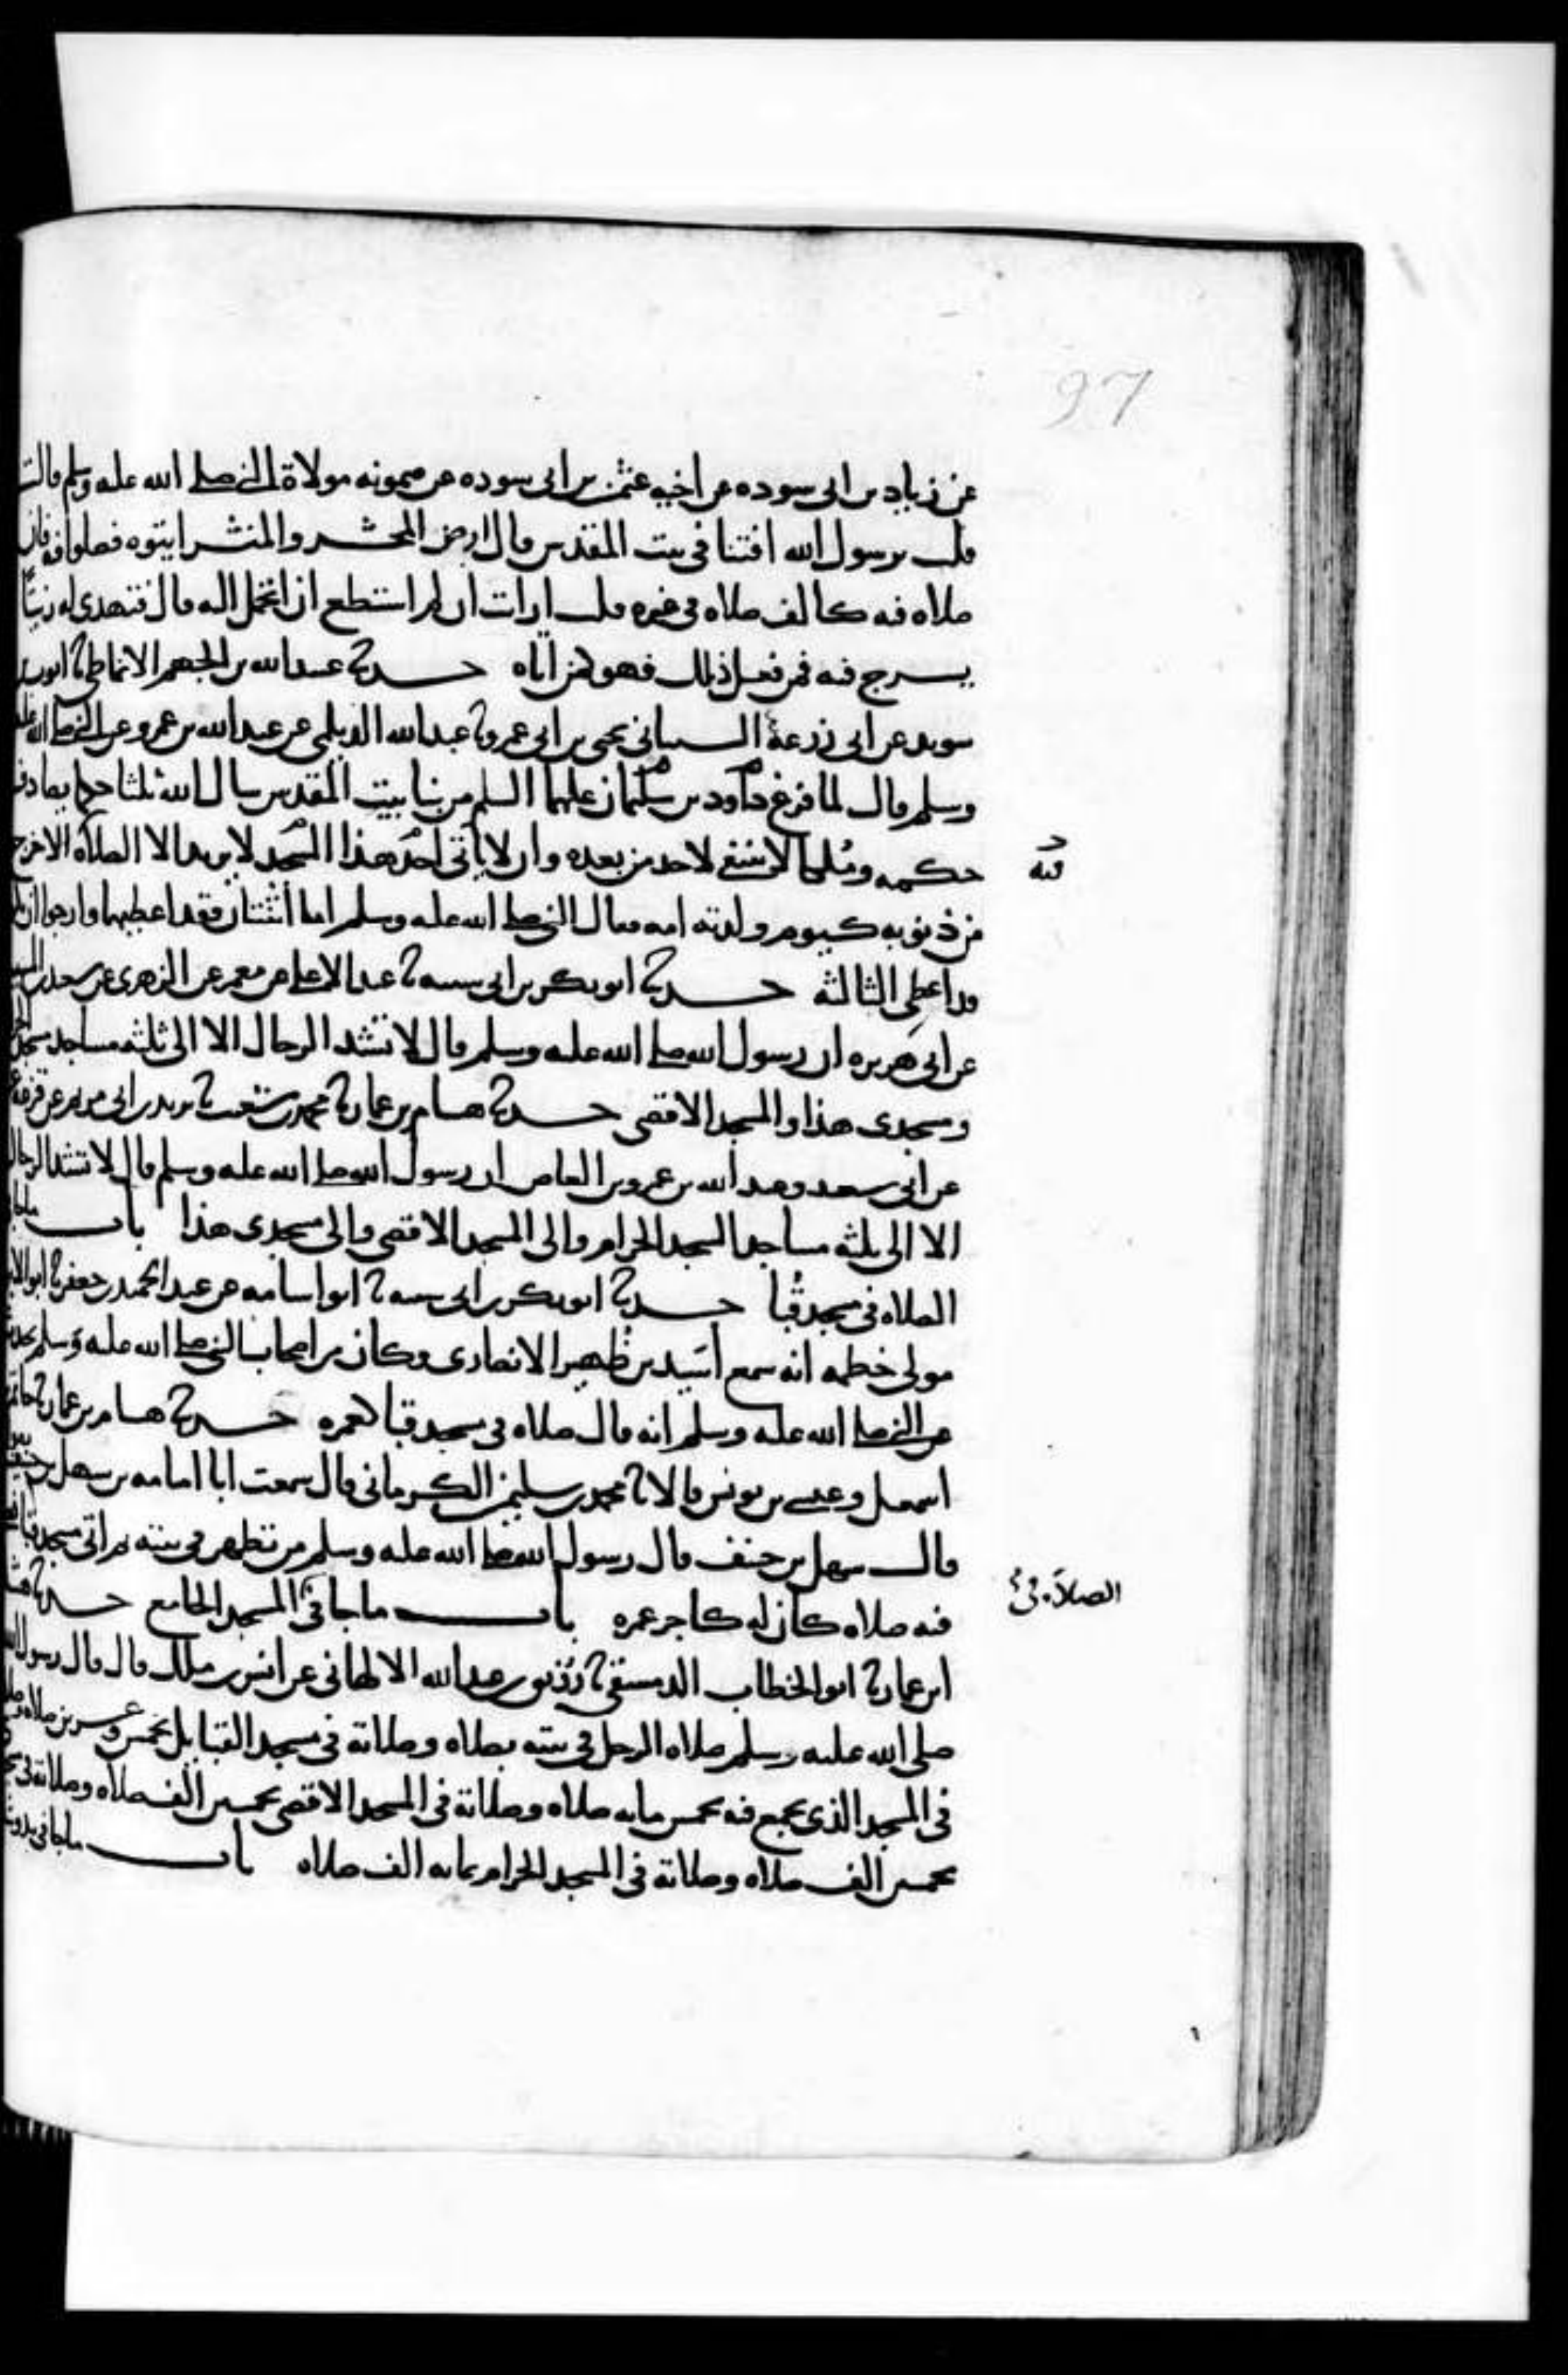 97
عن زياد بن ابى سوده عن اخيه عثمن بن ابى سوده عن ميمونه مولاة النبى صلى الله عليه وسلم قالت
قلت يرسول الله افتنا فى بيت المقدس قال ارض المحشر والمنشر ايتوه فصلوا فيه فان
صلاه فيه كالف صلاه فى غيره قلت ارات ان لم استطع ان اتحمل اليه قال فتهدى له زيتا
يسرج فيه فمن فعل ذلك فهو كمن اتاه حدثنا عبيدالله بن الجهم الانماطى ثنا ايوب بن
سويد عن ابى زرعة السيبانى يحيى بن ابى عمرو ثنا عبدالله الديلمى عن عبدالله بن عمرو عن النبى صلى الله عليه
وسلم قال لما فرغ داود بن سليمان عليهما السلم من بنا بيت المقدس سال الله ثلثا حكما يصادف
حكمه وملكا لا ينبغى لاحد من بعده وان لا ياتى احد هذا المسجد لا يريد الا الصلاة الا خرج
فيه
من ذنوبه كيوم ولدته امه فقال النبى صلى الله عليه وسلم اما اثنتان فقد اعطيهما وارجوا ان
قد اعطى الثالثه حدثنا ابو بكر بن ابى شيبه ثنا عبد الاعلى عن معمر عن الزهرى عن سعيد بن المسيب
عن ابى هريره ان رسول الله صلى الله عليه وسلم قال لا تشد الرحال الا الى ثلثه مساجد مسجد
ومسجدى هذا والمسجد الاقصى حدثنا هشام بن عمار ثنا محمد بن شعيب ثنا يزيد بن ابى مريم عن قزعة
عن ابى سعيد وعبدالله بن عمرو بن العاص ان رسول الله صلى الله عليه وسلم قال لا تشد الرحال
الا الى ثلثه مساجد المسجد الحرام والى المسجد الاقصى والى مسجدى هذا باب ماجا
الصلاه فى مسجد قُبا حدثنا ابو بكر بن ابى شيبه ثنا ابو اسامه عن عبدالحميد بن جعفر ثنا ابو الابرد
مولى خطمه انه سمع اسَيد بن ظُهير الانصارى وكان من اصحاب النبى صلى الله عليه وسلم يحدث
عن النبى صلى الله عليه وسلم انه قال صلاه فى مسجد قبا كعمره حدثنا هشام بن عمار ثنا حاتم
اسمعيل وعيسى بن يونس قالا ثنا محمد بن سليمن الكرمانى قال سمعت ابا امامه بن سهل بن حنيف
قال سهل بن حنيف قال رسول الله صلى الله عليه وسلم من تطهر فى بيته ثم اتى مسجد قبا
فيه صلاه كان له كاجر عمره باب ماجا فى المسجد الجامع حدثنا هشام
الصلاة فى
ابن عمار ثنا ابو الخطاب الدمشقى ثنا رُزيق بن عبدالله الالهانى عن انس بن ملك قال قال رسول الله
صلى الله عليه وسلم صلاه الرجل فى بيته بصلاه وصلاته فى مسجد القبايل بخمس وعشرين صلاه وصلاته
فى المسجد الذى يجمع فيه بخمس مايه صلاه وصلاته فى المسجد الاقصى بخمسين الف صلاه وصلاته فى
بخمسين الف صلاه وصلاته فى المسجد الحرام بمايه الف صلاه باب ماجا فى بدو